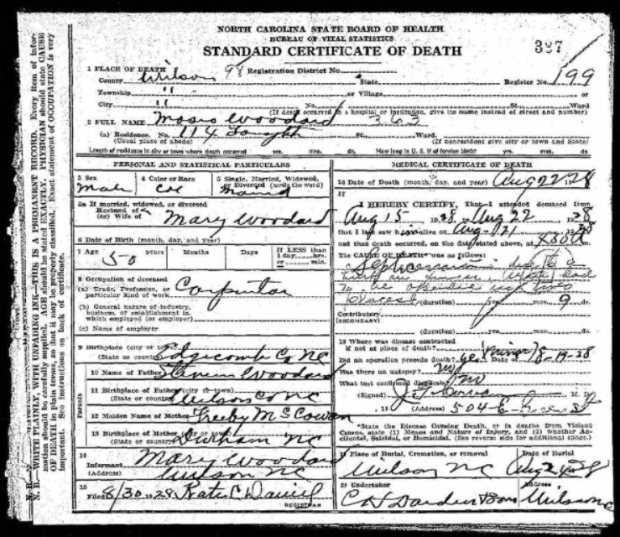 NORTH CAROLINA STATE BOARD OF HEALTH
BUREAU OF VITAL STATISTICS
STANDARD CERTIFICATE OF DEATH
387
1 PLACE OF DEATH
County Wilson 98 Registration District No. State Register No. 199
Township " or Village
City " No. St. Ward
(If death occurred in a hospital or institution, give its name instead of street and number)
2 FULL NAME Moses Woodard 363
(a) Residence. No. 114 St. Ward.
(Usual place of abode) (If nonresident give city or town and State)
Length of residence in city or town where death occurred yrs. mos. ds. How long in U. S. if of foreign birth? yrs. mos. ds.
PERSONAL AND STATISTICAL PARTICULARS
3 Sex 4 Color or Race 5 Single, Married, Widowed, Divorced (write the word)
Male Col
5a If married, widowed, or divorced
Husband of
(or) Wife of Mary Woodard
6 Date of Birth (month, day, and year)
7 Age 50 Years Months Days IF LESS than 1 day, hrs. or min.
8 Occupation of deceased
(a) Trade, Profession, or particular kind of work Carpenter
(b) General nature of industry, business, or establishment in which employed (or employer)
(c) Name of employer
9 Birthplace (city or town)
(State or country) Edgicomb Co NC
10 Name of Father Woodard
11 Birthplace of Father (city or town)
(State or country) Wilson Co NC
12 Maiden Name of Mother McCowan
13 Birthplace of Mother
(State or country) Durham NC
14
Informant Mary Woodard
(Address) Wilson NC
15
Filed 8/30 1928 Kate C Daniel
REGISTRAR
MEDICAL CERTIFICATE OF DEATH
16 Date of Death (month, day, and year) Aug 22 28
17
I HEREBY CERTIFY, That I attended deceased from
Aug 15 1928 Aug 22 1928
that I last saw him alive on Aug 21
and that death occurred, on the date stated above, at
The CAUSE OF DEATH was as follows:
to be
(duration) yrs. mos. 9 ds.
Contributory
(SECONDARY)
(duration) yrs. mos. ds.
18 Where was disease contracted
if not at place of death?
Did an operation precede death? yes (minor) 8-19-28
Was there an autopsy? no
What test confirmed diagnosis?
(Signed) M. D.
19 (Address) 504 E
*State the Disease Causing Death, or in deaths from Violent Causes, state (1) Means and Nature of Injury, and (2) whether Accidental, Suicidal, or Homicidal. (See reverse side for additional space.)
Place of Burial, Cremation, or removal Date of Burial
Wilson NC Aug 24 28
Undertaker
C H Darden & Sons Wilson NC
Parents
N. B.—WRITE PLAINLY, WITH UNFADING INK—THIS IS A PERMANENT RECORD. Every item of information should be carefully supplied. AGE should be stated EXACTLY. PHYSICIANS should state CAUSE OF DEATH in plain terms, so that it may be properly classified. Exact statement of OCCUPATION is very important. See instructions on back of certificate.